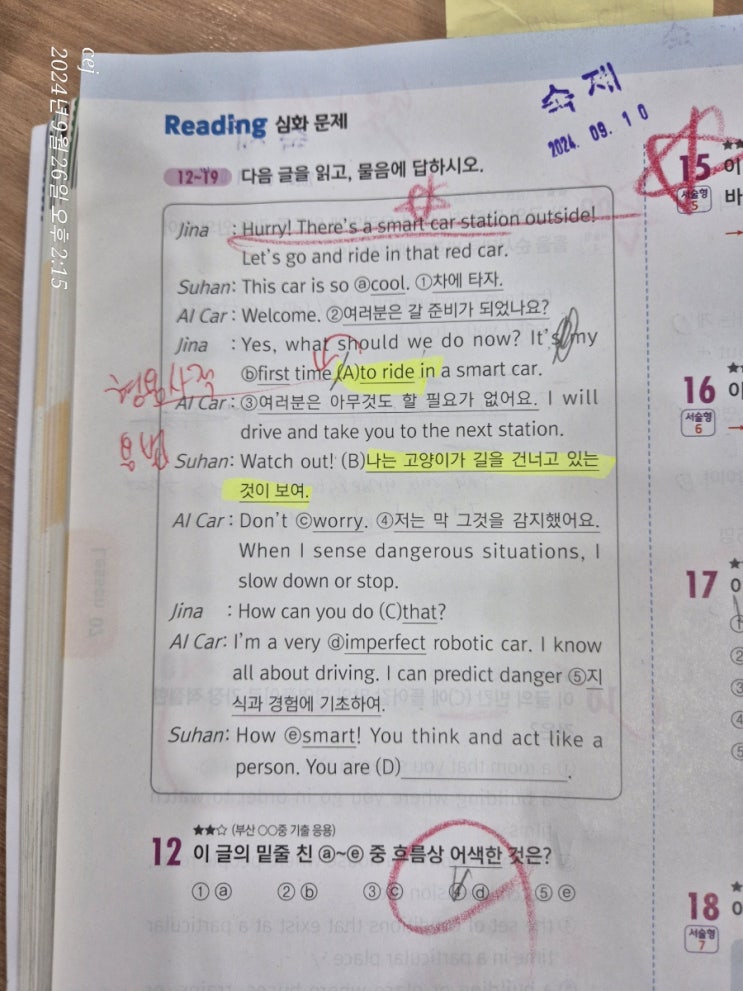 cej
2024년 9월 26일 오후 2:15
숙제
2024. 09. 10
Reading 심화 문제
12~19 다음 글을 읽고, 물음에 답하시오.
Jina : Hurry! There's a smart car station outside!
Let's go and ride in that red car.
Suhan: This car is so ⓐcool. ①차에 타자.
AI Car : Welcome. ②여러분은 갈 준비가 되었나요?
Jina : Yes, what should we do now? It's my
ⓑfirst time (A)to ride in a smart car.
AI Car : ③여러분은 아무것도 할 필요가 없어요. I will
drive and take you to the next station.
Suhan: Watch out! (B)나는 고양이가 길을 건너고 있는
것이 보여.
AI Car : Don't ⓒworry. ④저는 막 그것을 감지했어요.
When I sense dangerous situations, I
slow down or stop.
Jina : How can you do (C)that?
AI Car: I'm a very ⓓimperfect robotic car. I know
all about driving. I can predict danger ⑤지
식과 경험에 기초하여.
Suhan: How ⓔsmart! You think and act like a
person. You are (D)____________.
★★☆ (부산 ○○중 기출 응용)
12 이 글의 밑줄 친 ⓐ~ⓔ 중 흐름상 어색한 것은?
① ⓐ ② ⓑ ③ ⓒ ④ ⓓ ⑤ ⓔ
15 이
서술형 5 바
16 이
서술형 6
17 이
①
②
③
④
⑤
18 이
서술형 7